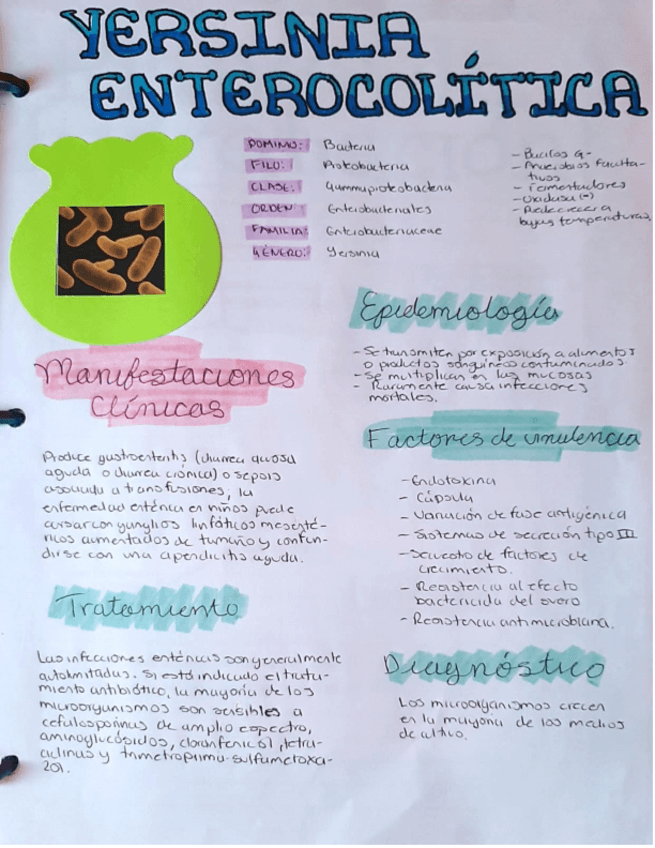 YERSINIA
ENTEROCOLÍTICA
DOMINIO: Bacteria
FILO: Proteobacteria
CLASE: Gammaproteobacteria
ORDEN: Enterobacteriales
FAMILIA: Enterobacteriaceae
GÉNERO: Yersinia
- Bacilos G-
- Anaerobios faculta-
tivos
- Fermentadores
- Oxidasa (-)
- Puede crecer a
bajas temperaturas
Epidemiología
- Se transmiten por exposición a alimentos
o productos sanguíneos contaminados.
- Se multiplican en las mucosas
- Raramente causa infecciones
mortales.
Manifestaciones
Clínicas
Produce gastroenteritis (diarrea acuosa
aguda o diarrea crónica) o sepsis
asociada a transfusiones, la
enfermedad entérica en niños puede
cursar con ganglios linfáticos mesenté-
ricos aumentados de tamaño y confun-
dirse con una apendicitis aguda.
Factores de virulencia
- Endotoxina
- Cápsula
- Variación de fase antigénica
- Sistemas de secreción tipo III
- Secuestro de factores de
crecimiento.
- Resistencia al efecto
bactericida del suero
- Resistencia antimicrobiana.
Tratamiento
Las infecciones entéricas son generalmente
autolimitadas. Si está indicado el trata-
miento antibiótico, la mayoría de los
microorganismos son sensibles a
cefalosporinas de amplio espectro,
aminoglucósidos, cloranfenicol, tetra-
ciclinas y trimetroprima-sulfametoxa-
zol.
Diagnóstico
Los microorganismos crecen
en la mayoría de los medios
de cultivo.